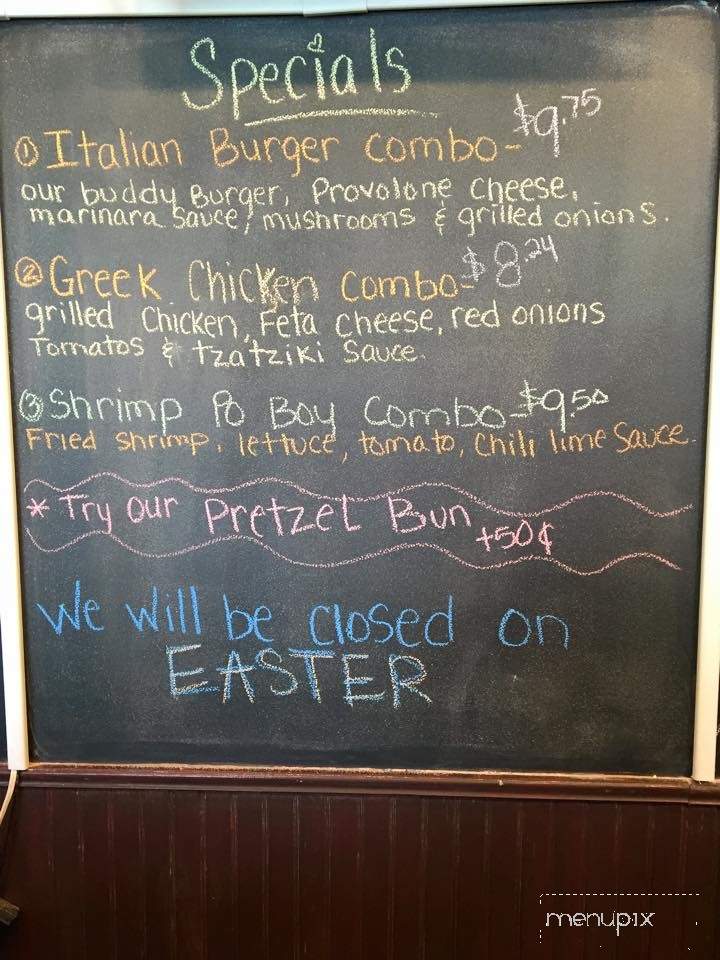 Specials
① Italian Burger combo - $9.75
our buddy Burger, Provolone cheese,
marinara sauce, mushrooms & grilled onions.
② Greek Chicken combo - $8.24
grilled Chicken, Feta cheese, red onions
Tomatos & tzatziki Sauce.
③ Shrimp Po Boy Combo - $9.50
Fried shrimp, lettuce, tomato, chili lime Sauce.
* Try our Pretzel Bun +50¢
We will be closed on
EASTER
menupix